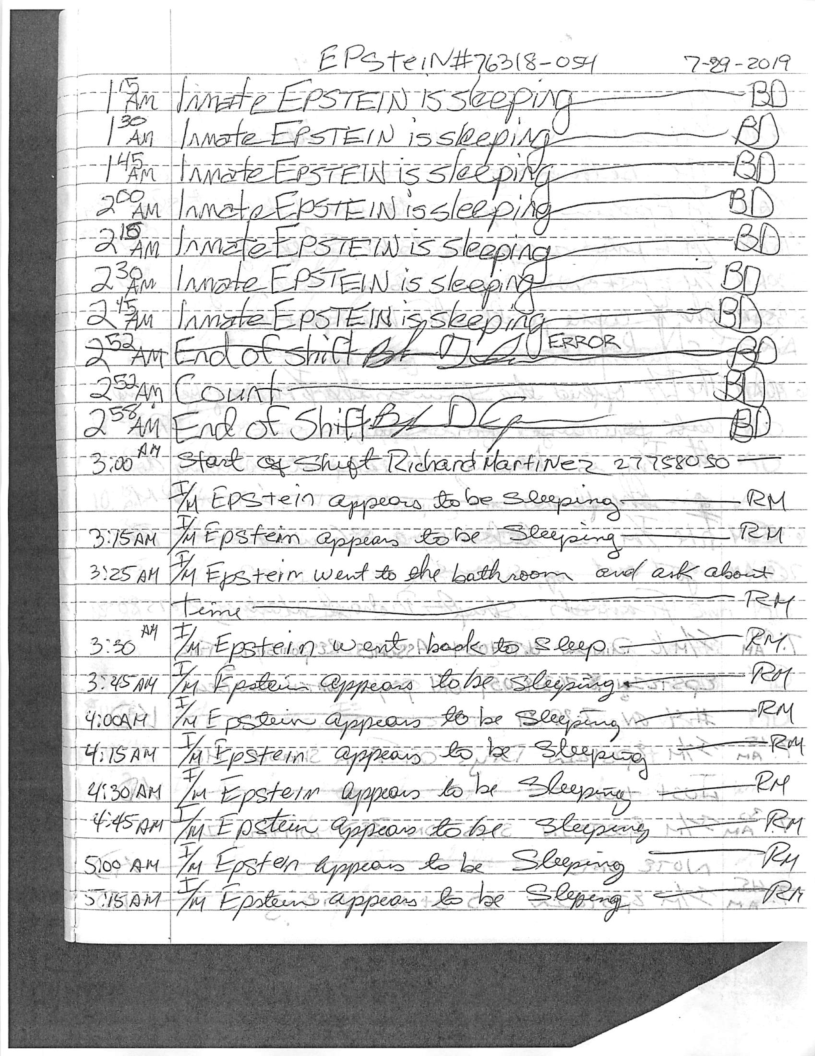 EPSteiN#76318-054 7-29-2019
1 15 AM Inmate EPSTEIN is sleeping BD
1 30 AM Inmate EPSTEIN is sleeping BD
1 45 AM Inmate EPSTEIN is sleeping BD
2 00 AM Inmate EPSTEIN is sleeping BD
2 15 AM Inmate EPSTEIN is sleeping BD
2 30 AM Inmate EPSTEIN is sleeping BD
2 45 AM Inmate EPSTEIN is sleeping BD
2 52 AM End of shift ERROR BD
2 52 AM Count BD
2 58 AM End of Shift BD
3:00 AM Start of Shift Richard Martinez 27758050
I/M EPStein appears to be Sleeping RM
3:15 AM I/M Epstein appears to be Sleeping RM
3:25 AM I/M Epstein went to the bathroom and ask about
time RM
3:30 AM I/M Epstein went back to sleep. RM.
3:45 AM I/M Epstein appears to be sleeping RM
4:00AM I/M Epstein appears to be Sleeping RM
4:15 AM I/M Epstein appears to be Sleeping RM
4:30 AM I/M Epstein appears to be Sleeping RM
4:45 AM I/M Epstein appears to be Sleeping RM
5:00 AM I/M Epsten appears to be Sleeping RM
5:15 AM I/M Epstein appears to be Sleping RM